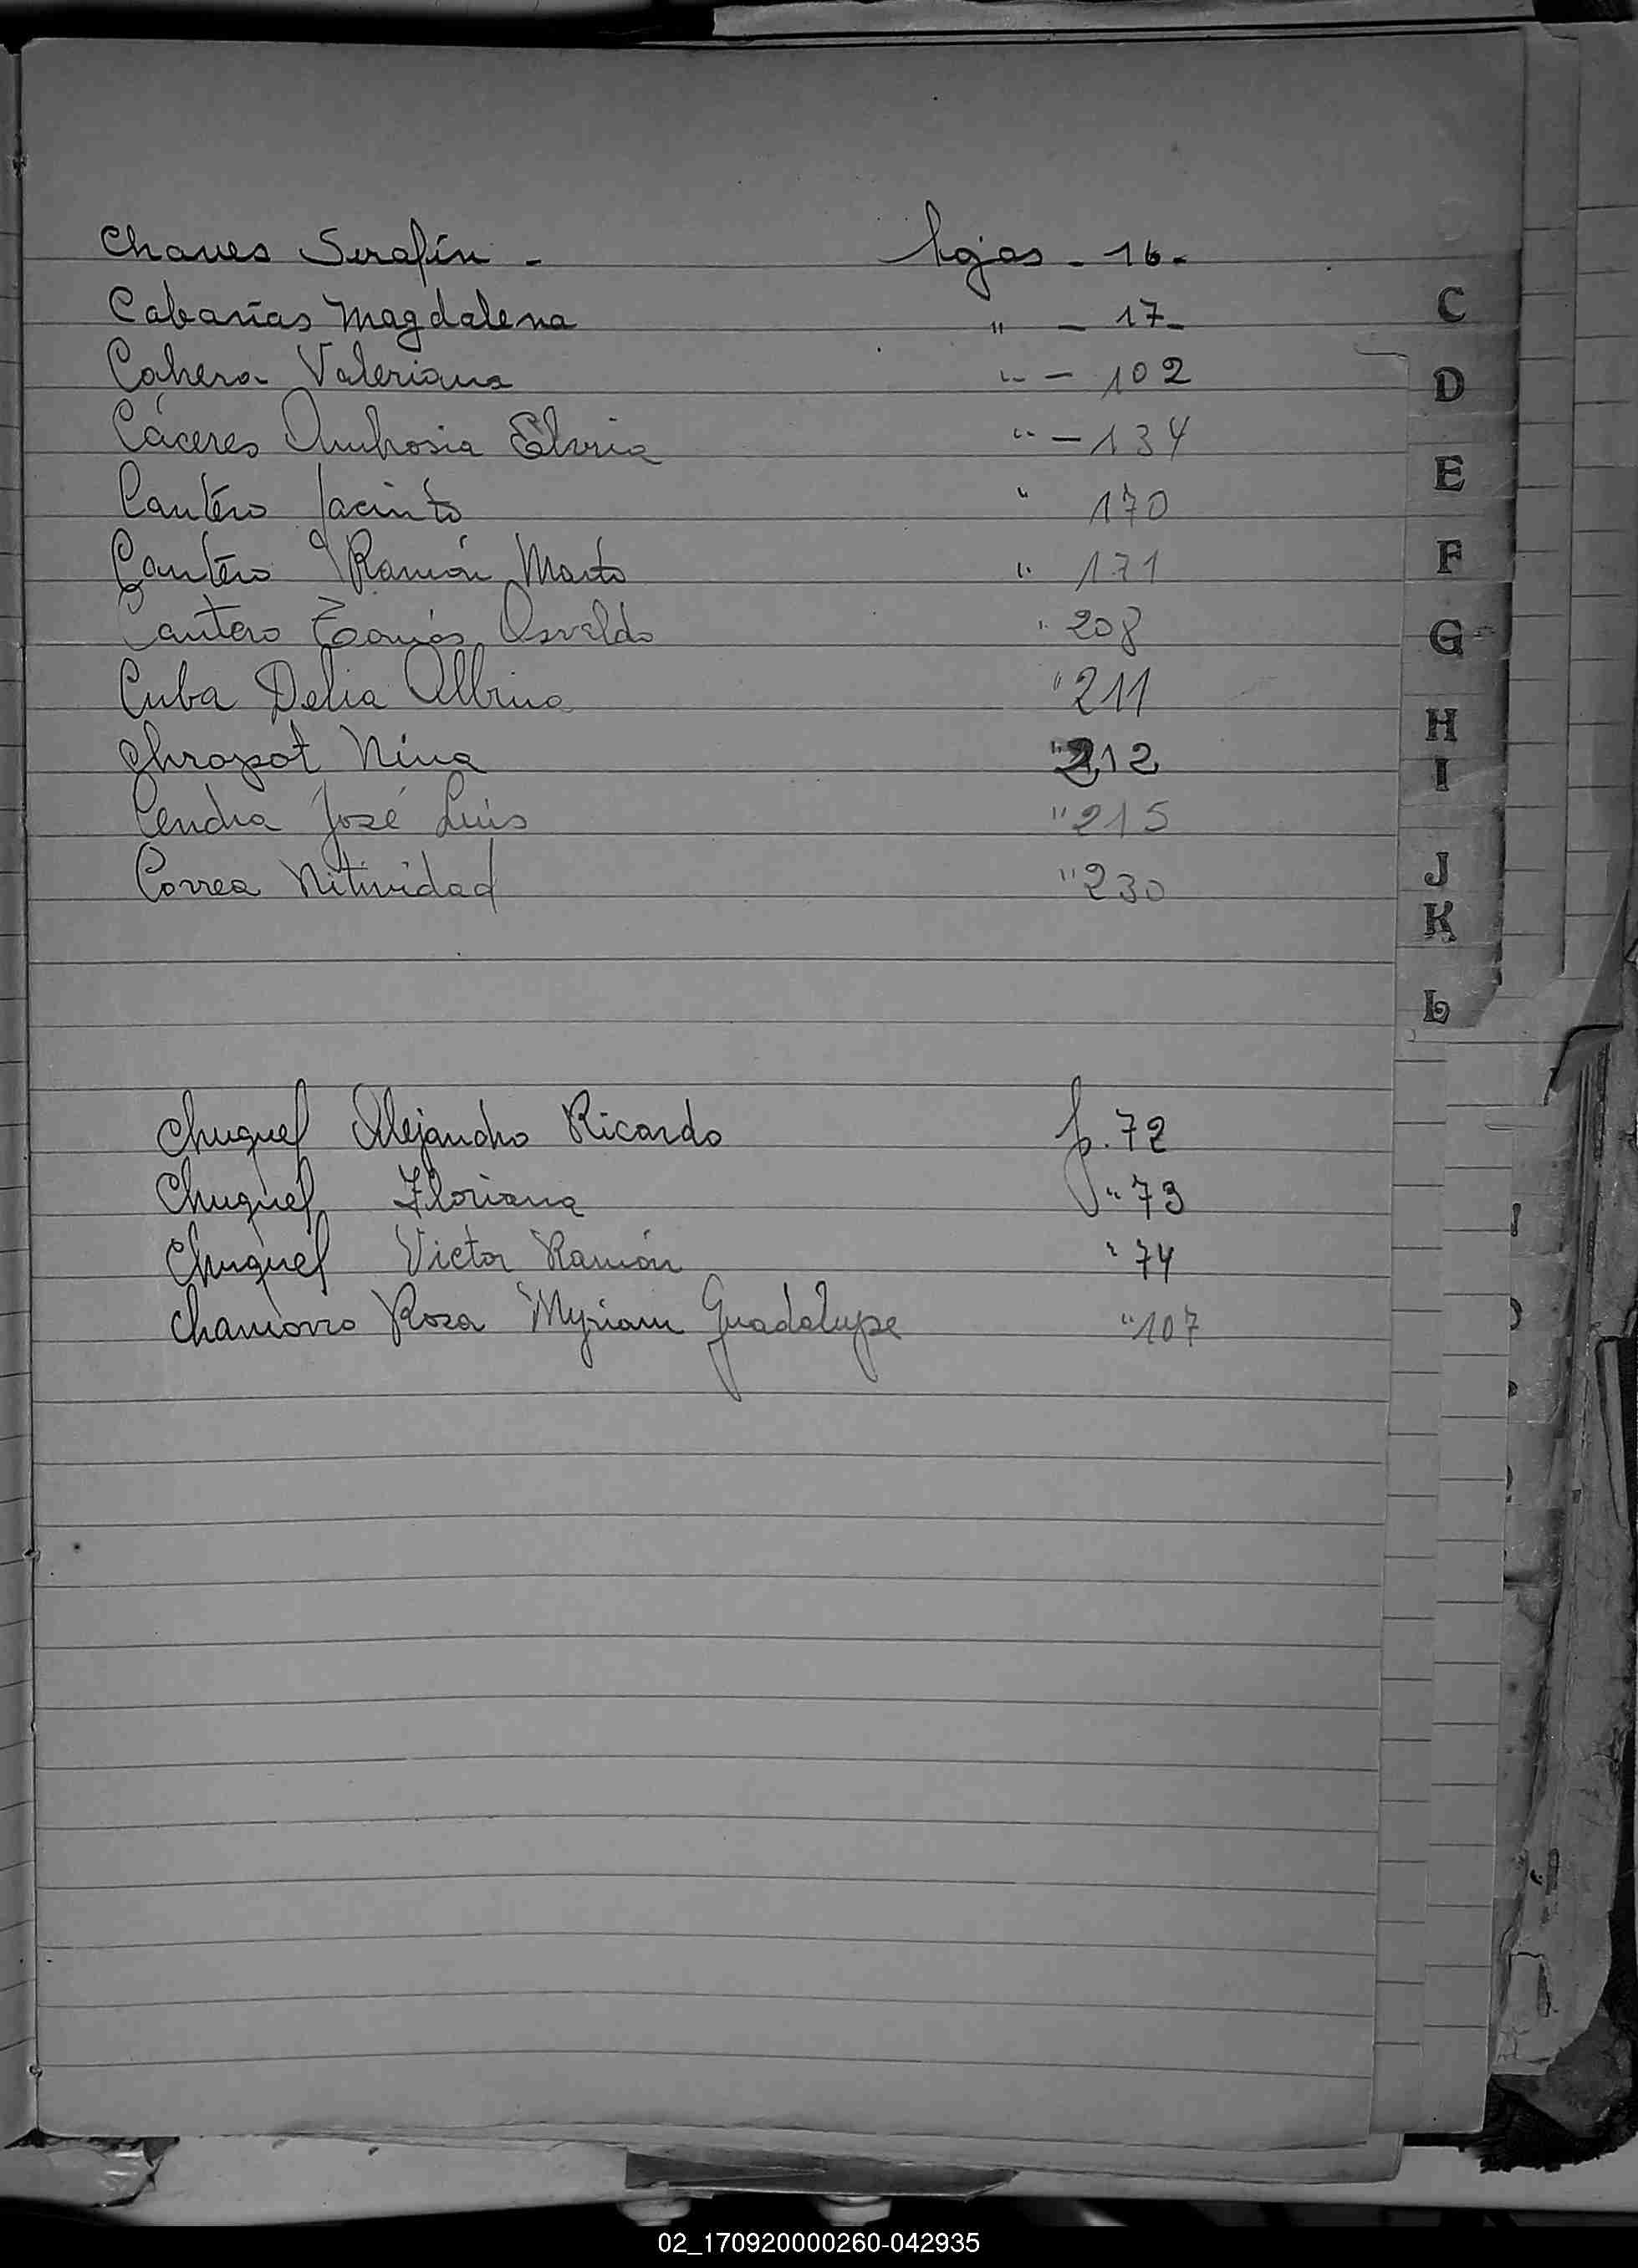 Chaves Serafín - hojas - 16 -
Cabañas Magdalena " - 17 -
C
Cabera Valeriana " - 102
D
Cáceres Ambrosia Elvia " - 134
E
Cantero Jacinto " 170
F
Cantero Ramón Marto " 171
Cantero Tomás Osvaldo " 208
G
Cuba Delia Albina " 211
H
Chropot Nina " 212
I
Cendra José Luis " 215
J
Correa Nitividad " 230
K
L
Chuquel Alejandro Ricardo f. 72
Chuquel Floriana " 73
Chuquel Victor Ramón " 74
Chamorro Rosa Myriam Guadalupe " 107
02_170920000260-042935